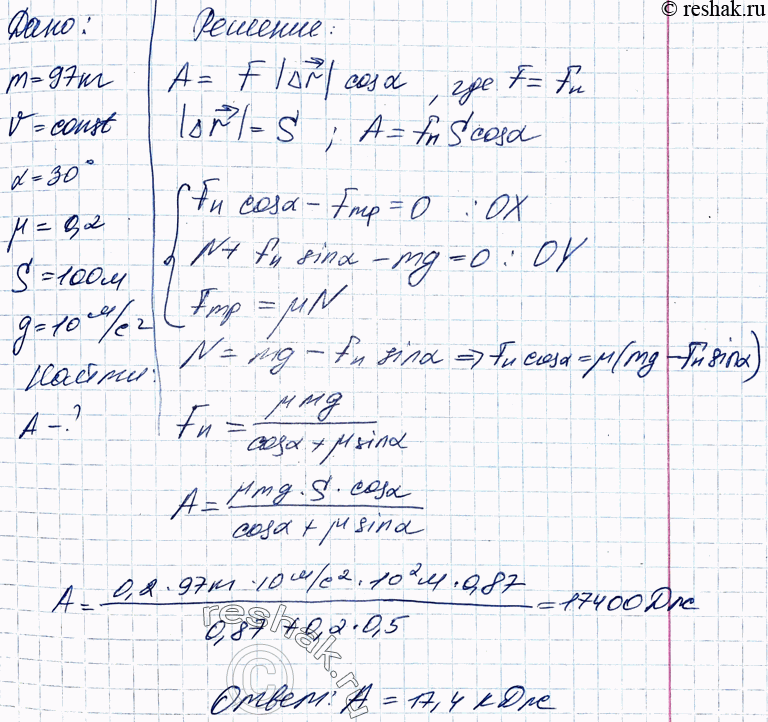 © reshak.ru
Дано:
m = 97 кг
V = const
α = 30°
μ = 0,2
S = 100 м
g = 10 м/с²
Найти:
A - ?
Решение:
A = F |Δr⃗| cosα , где F = Fн
|Δr⃗| = S ; A = Fн S cosα
Fн cosα - Fтр = 0 : OX
N + Fн sinα - mg = 0 : OY
Fтр = μN
N = mg - Fн sinα ⇒ Fн cosα = μ(mg - Fн sinα)
Fн = μmg / (cosα + μ sinα)
A = μmg · S · cosα / (cosα + μ sinα)
A = 0,2 · 97 кг · 10 м/с² · 10² м · 0,87 / (0,87 + 0,2 · 0,5) = 17400 Дж
reshak.ru
©
Ответ: A = 17,4 кДж